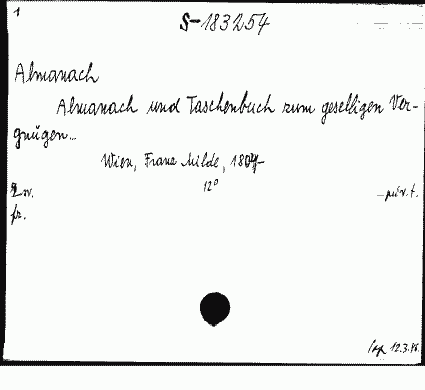 1
S-183254
Almanach
Almanach und Taschenbuch zum geselligen Ver-
gnügen...
Wien, Franz Milde, 1804-
12°
2 sv.
fr.
12.3.